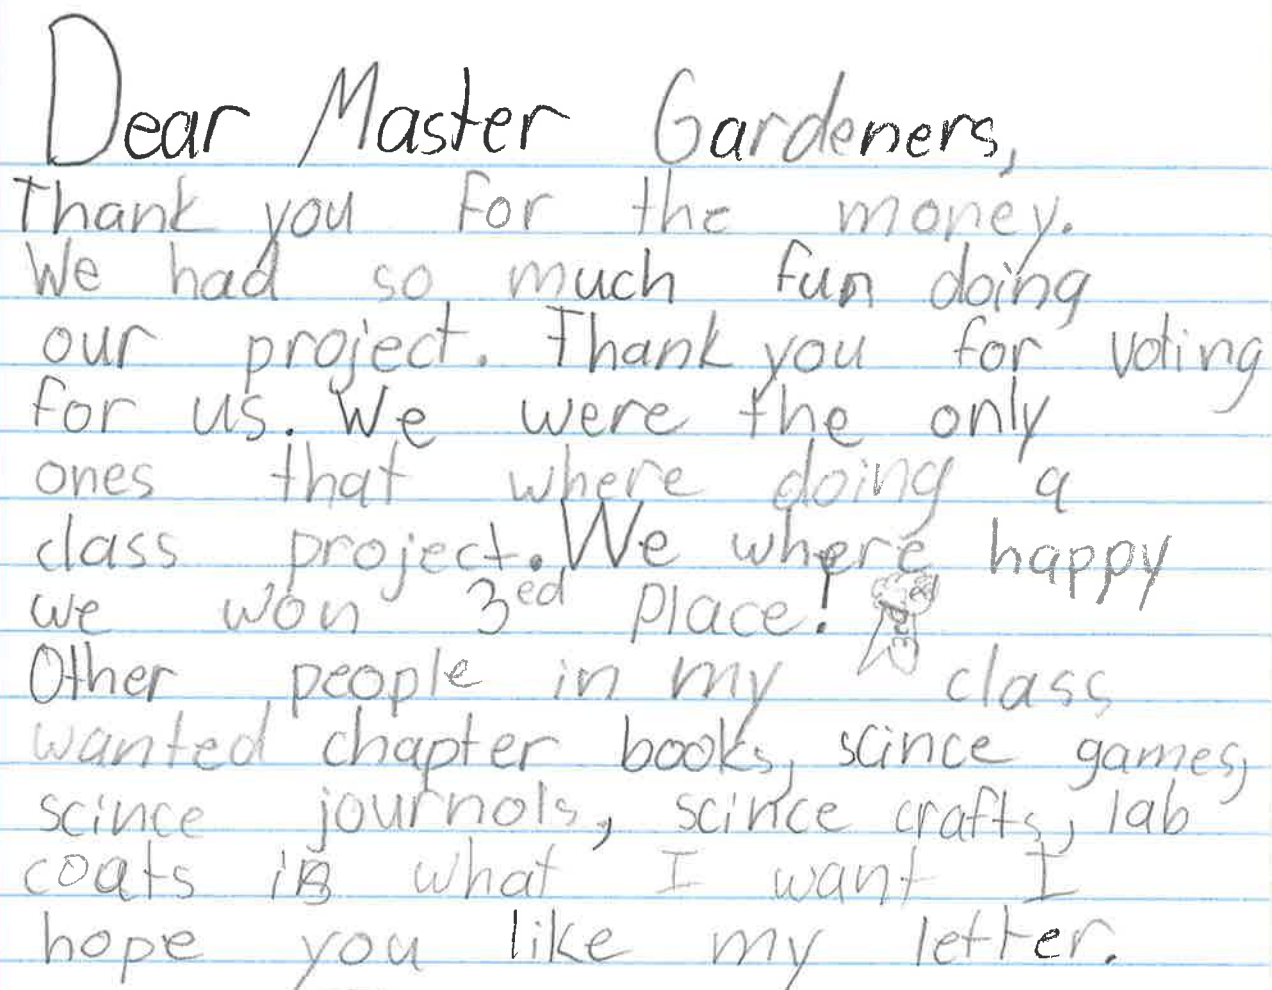 Dear Master Gardeners,
Thank you for the money.
We had so much fun doing
our project. Thank you for voting
for us. We were the only
ones that where doing a
class project. We where happy
we won 3ed place! 3ed
Other people in my class
wanted chapter books, scince games,
scince journols, scince crafts, lab
coats is what I want I
hope you like my letter.